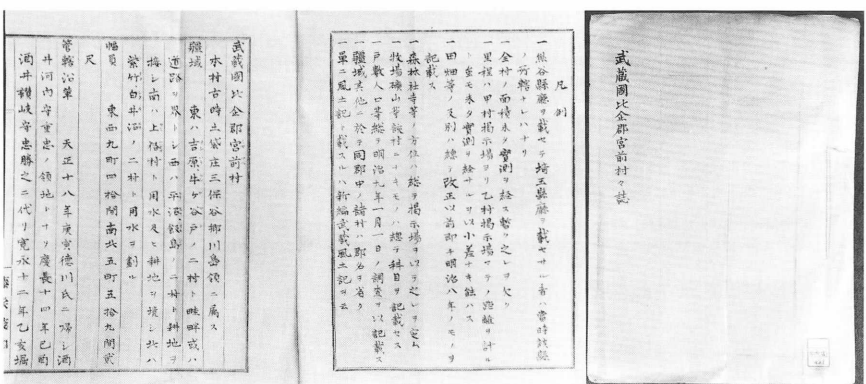 武蔵國比企郡宮前村々誌
凡例
一熊谷縣廳ヲ載セテ埼玉縣廳ヲ載セサル者ハ當時該縣
ノ所轄ナレハナリ
一全村ノ面積未タ實測ヲ経ス暫ク之レヲ欠ク
一里程ハ甲村掲示場ヨリ乙村掲示場マテノ距離ヲ計ル
ト雖モ未タ實測ヲ経サルヲ以小差ナキ能ハス
一田畑等ノ反別ハ総テ改正以前即チ明治八年ノモノヲ
記載ス
一森林社寺等ノ方位ハ総テ掲示場ヲ以テ之レヲ定ム
一牧場礦山等該村ニナキモノハ總テ科目ヲ記載セス
一戸數人口等総テ明治九年一月一日ノ調査ヲ以記載ス
一疆域其他ニ於テ同郡中ノ諸村ハ郡名ヲ省ク
一單ニ風土記ト載スルハ新編武蔵風土記ヲ云
武蔵國比企郡宮前村
本村古時土袋庄三保谷郷川島領ニ属ス
疆域　東ハ吉原牛ケ谷戸ノ二村ト畦畔或ハ
道路ヲ界トシ西ハ平沼飯島ノ二村ト耕地ヲ
接シ南ハ上伊村ト用水及ヒ耕地ヲ境シ北ハ
紫竹白井沼ノ二村ト用水ヲ劃ル
幅員　東西九町四拾間南北五町五拾九間貮
尺
管轄沿革　天正十八年庚寅德川氏ニ帰シ酒
井河内守重忠ノ領地トナリ慶長十四年己酉
酒井讃岐守忠勝之ニ代リ寛永十二年乙亥堀